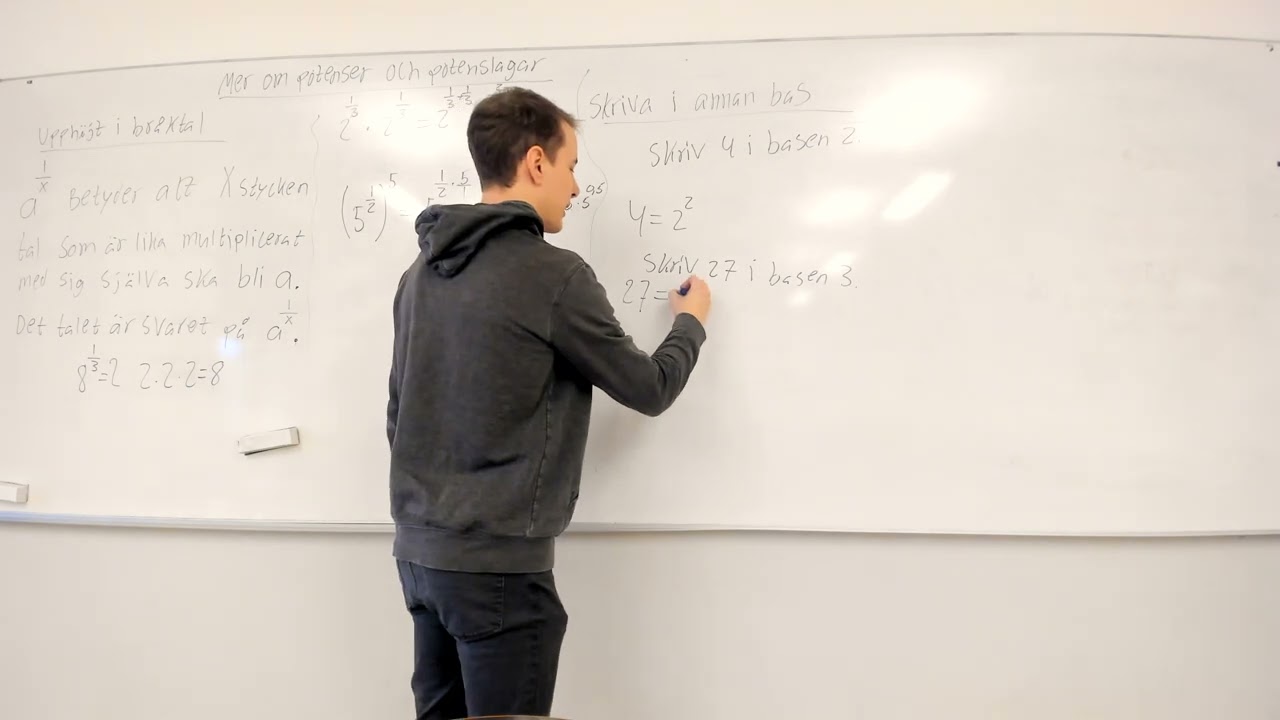 Mer om potenser och potenslagar
Upphöjt i bråktal
a^(1/x) Betyder att X stycken
tal som är lika multiplicerat
med sig själva ska bli a.
Det talet är svaret på a^(1/x).
8^(1/3)=2 2·2·2=8
2^(1/3) · 2^(1/3) = 2^(1/3+1/3)
(5^(1/2))^5 = 5^(1/2·5/1)
Skriva i annan bas
Skriv 4 i basen 2.
4=2^2
Skriv 27 i basen 3.
27=